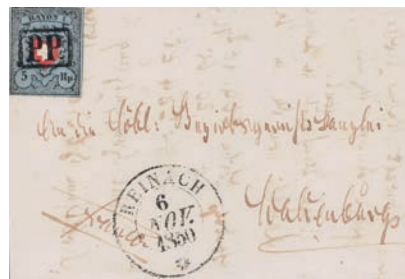 RAYON I
P.P.
5 Rp.
An die Löbl: Bezirksgerichtskanzlei
REINACH
6
NOV.
1850
Waldenburg